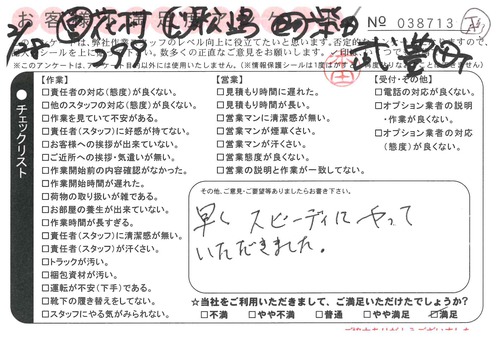 No 038713
【作業】
□責任者の対応(態度)が良くない。
□他のスタッフの対応(態度)が良くない。
□作業を見ていて不安がある。
□責任者(スタッフ)に好感が持てない。
□お客様への挨拶が出来ていない。
□ご近所への挨拶・気遣いが無い。
□作業開始前の内容確認がなかった。
□作業開始時間が遅れた。
□荷物の取り扱いが雑である。
□お部屋の養生が出来ていない。
□作業時間が長すぎる。
□責任者(スタッフ)に清潔感が無い。
□責任者(スタッフ)が汗くさい。
□トラックが汚い。
□梱包資材が汚い。
□運転が不安(下手)である。
□靴下の履き替えをしてない。
□スタッフにやる気がみられない。
【営業】
□見積もり時間に遅れた。
□見積もり時間が長い。
□営業マンに清潔感が無い。
□営業マンが煙草くさい。
□営業マンが汗くさい。
□営業態度が良くない。
□営業の説明と作業が一致してない。
【受付・その他】
□電話の対応が良くない。
□オプション業者の説明
・作業が良くない。
□オプション業者の対応
(態度)が良くない。
チェックリスト
その他、ご意見・ご要望等ありましたらお書き下さい。
早く スピーディに やって
いただきました。
☆当社をご利用いただきまして、ご満足いただけたでしょうか?
□不満 □やや不満 □普通 □やや満足 ☑満足